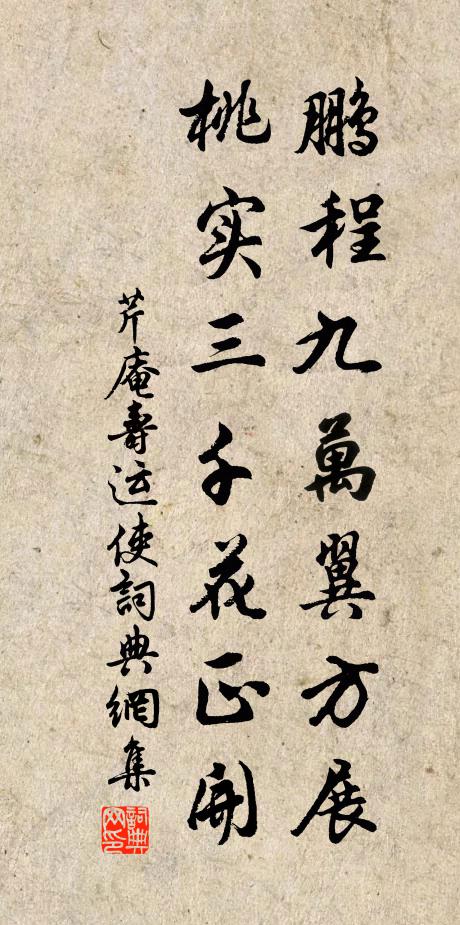 鹏程九萬翼方展
桃实三千花正開
芹庵壽运使詞典網集
詞典网印